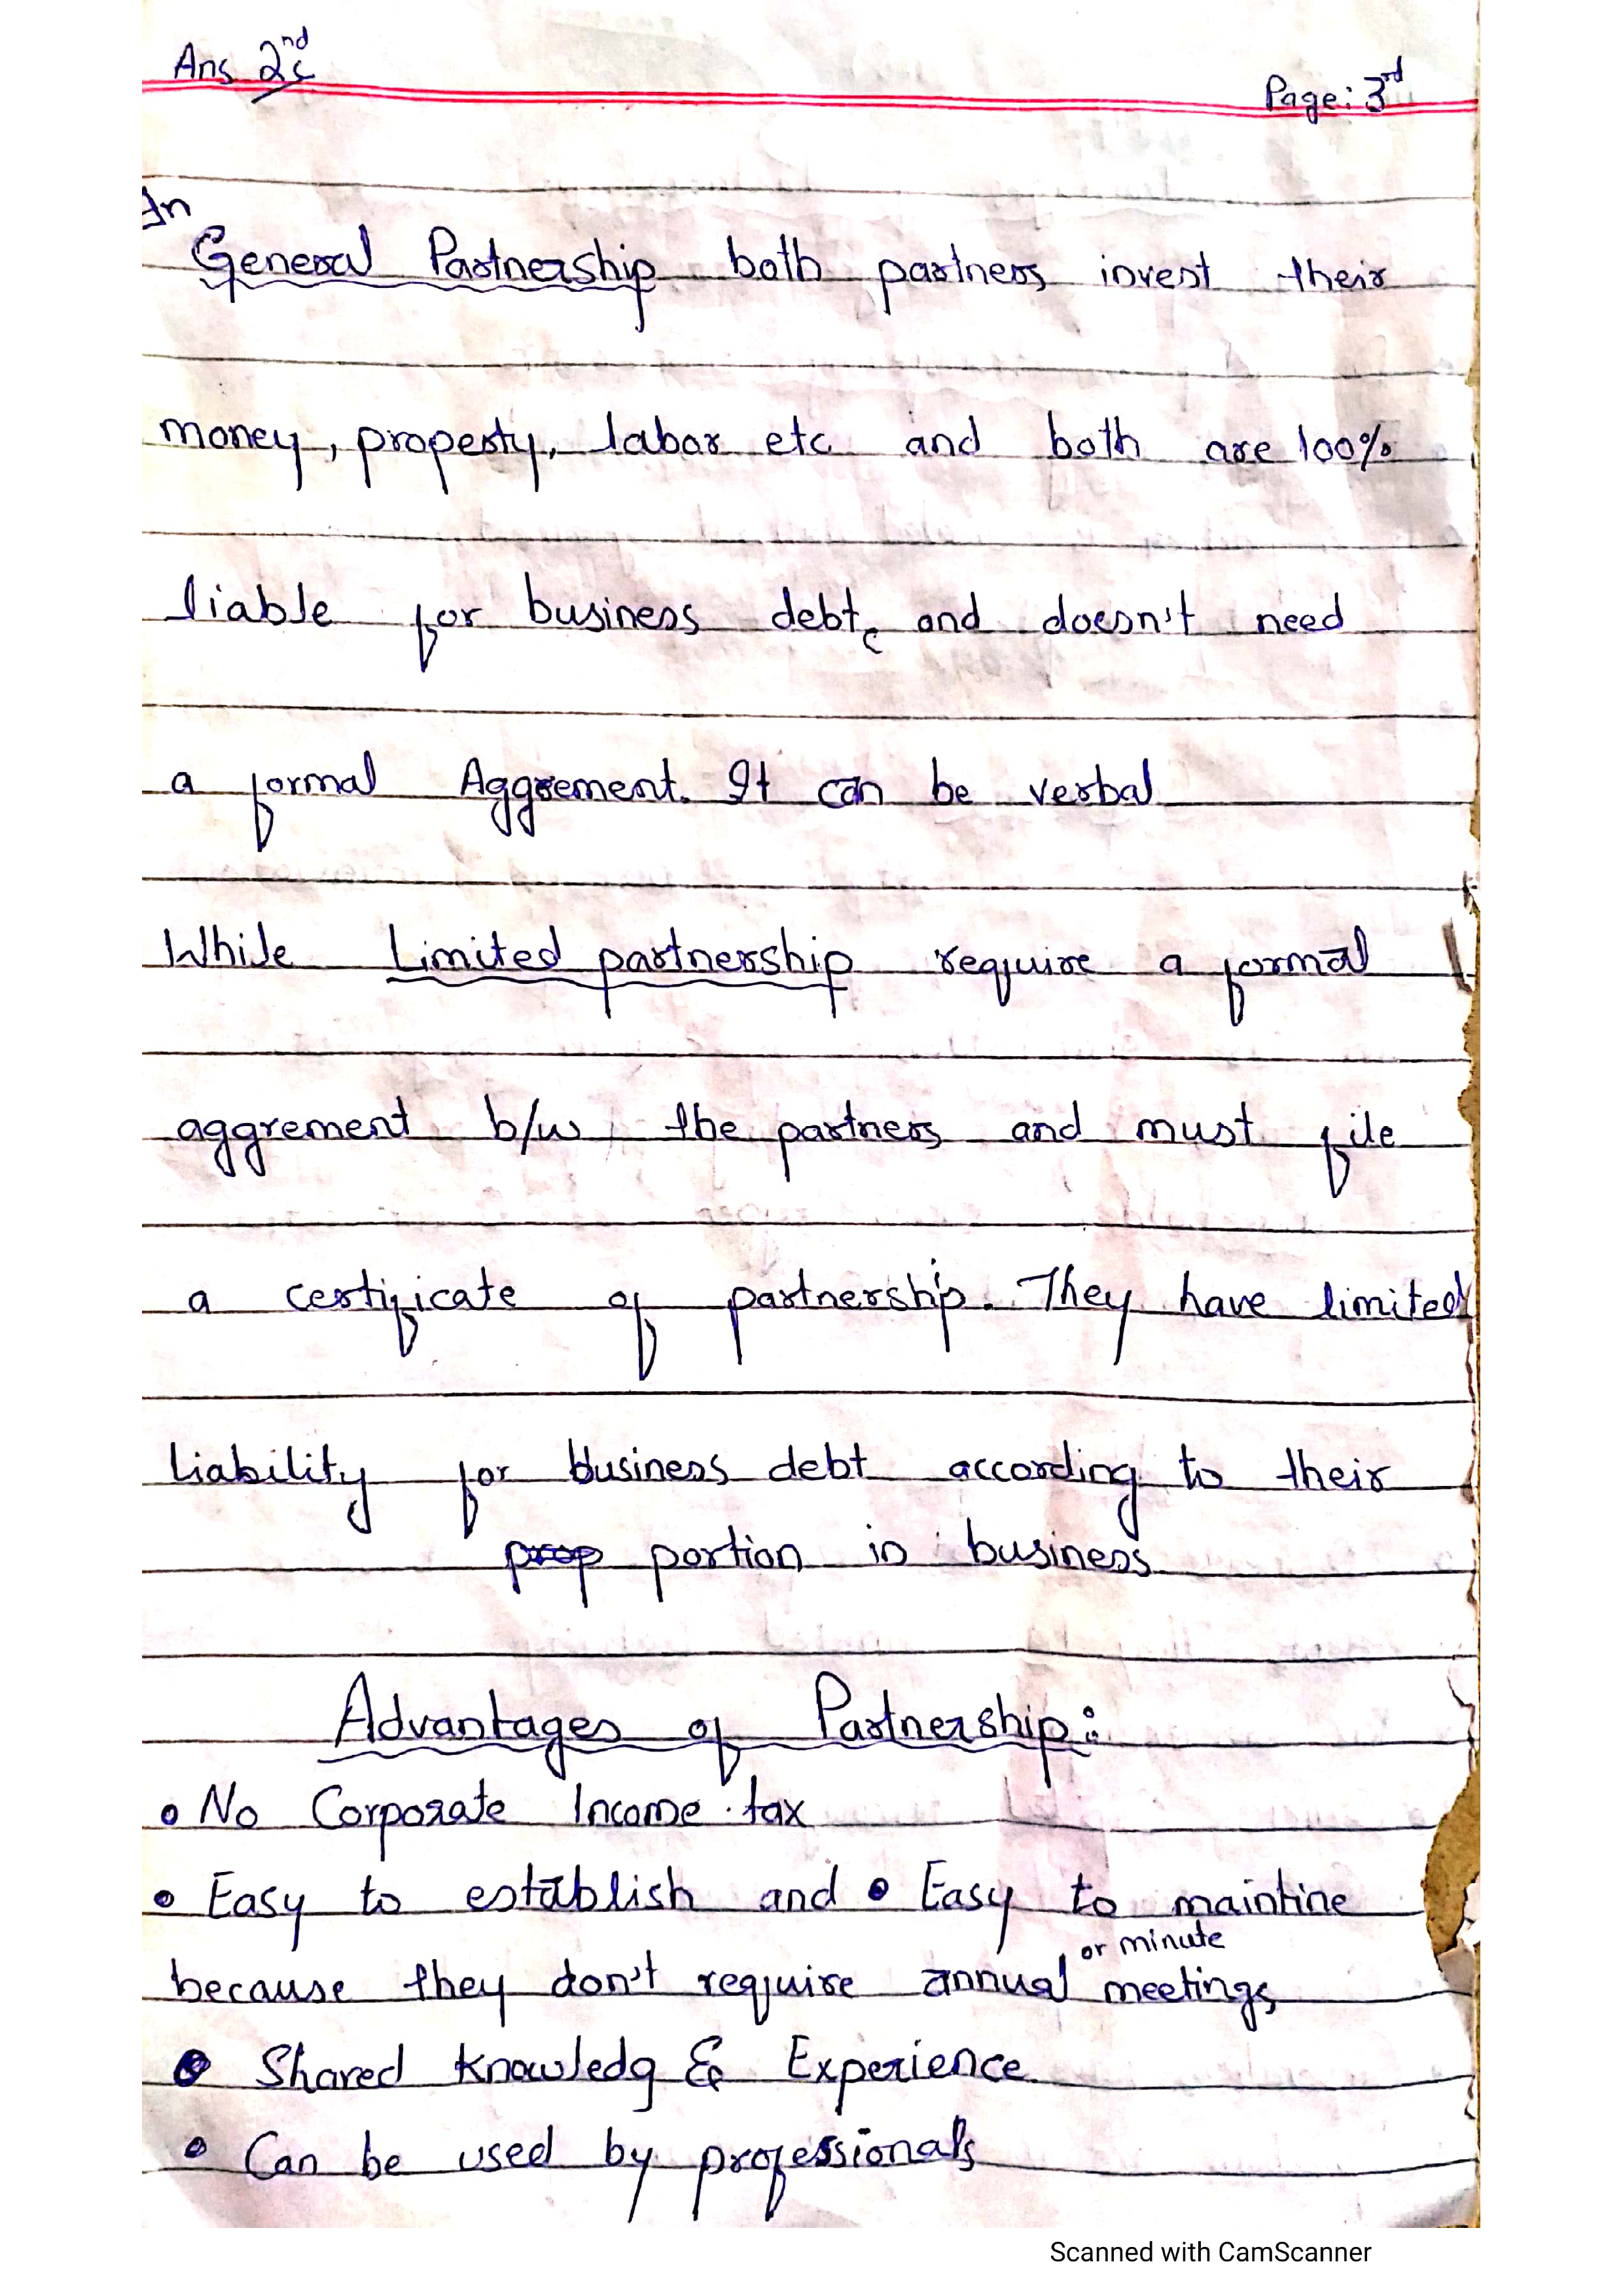 Ans 2nd
Page: 3rd
In
General Partnership both partners invest their
money, property, labor etc and both are 100%
liable for business debt, and doesn't need
a formal Aggrement. It can be verbal
While Limited partnership require a formal
aggrement b/w the partners and must file
a certificate of partnership. They have limited
liability for business debt according to their
prop portion in business
Advantages of Partnership:
• No Corporate Income tax
• Easy to establish and • Easy to maintine
or minute
because they don't require annual meetings
• Shared Knowledg & Experience
• Can be used by professionals
Scanned with CamScanner